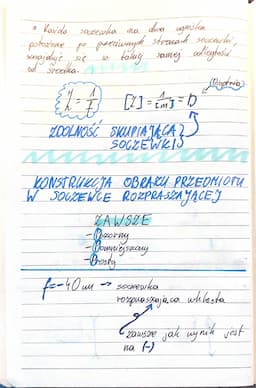 • Każda soczewka ma dwa ogniska
położone po przeciwnych stronach soczewki,
znajdują się w takiej samej odległości
od środka.
Z = 1/f
[Z] = 1/[m] = D
(Dioptria)
ZDOLNOŚĆ SKUPIAJĄCA
SOCZEWKI
KONSTRUKCJA OBRAZU PRZEDMIOTU
W SOCZEWCE ROZPRASZAJĄCEJ
ZAWSZE
- Pozorny
- Pomniejszony
- Prosty
f = -40 cm → soczewka
rozpraszająca wklęsła
zawsze jak wynik jest
na (-)